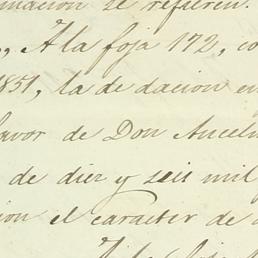 macion se refieren.
A la foja 172, co
1851, la de dacion en
favor de Don Ancelm
de diez y seis mil
ion el caracter de